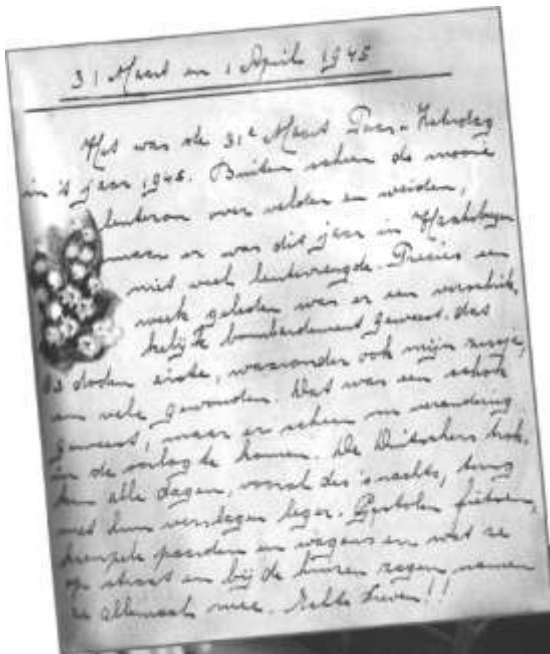 31 Maart en 1 April 1945
Het was de 31e Maart Paas-Zaterdag
in 't jaar 1945. Buiten scheen de mooie
lentezon over velden en weiden,
maar er was dit jaar in
niet veel lentevreugde. Precies een
week geleden was er een verschrik-
kelijk bombardement geweest, das
doden eiste, waaronder ook mijn zusje,
en vele gewonden. Dat was een schok
geweest, maar er scheen nu verandering
in de oorlog te komen. De Duitschers trok-
ken alle dagen, vooral des 's nachts, terug
met hun verslagen leger. Gestolen fietsen,
kreupele paarden en wagens en wat ze
op straat en bij de huizen zagen, namen
ze allemaal mee. Echte Dieven!!